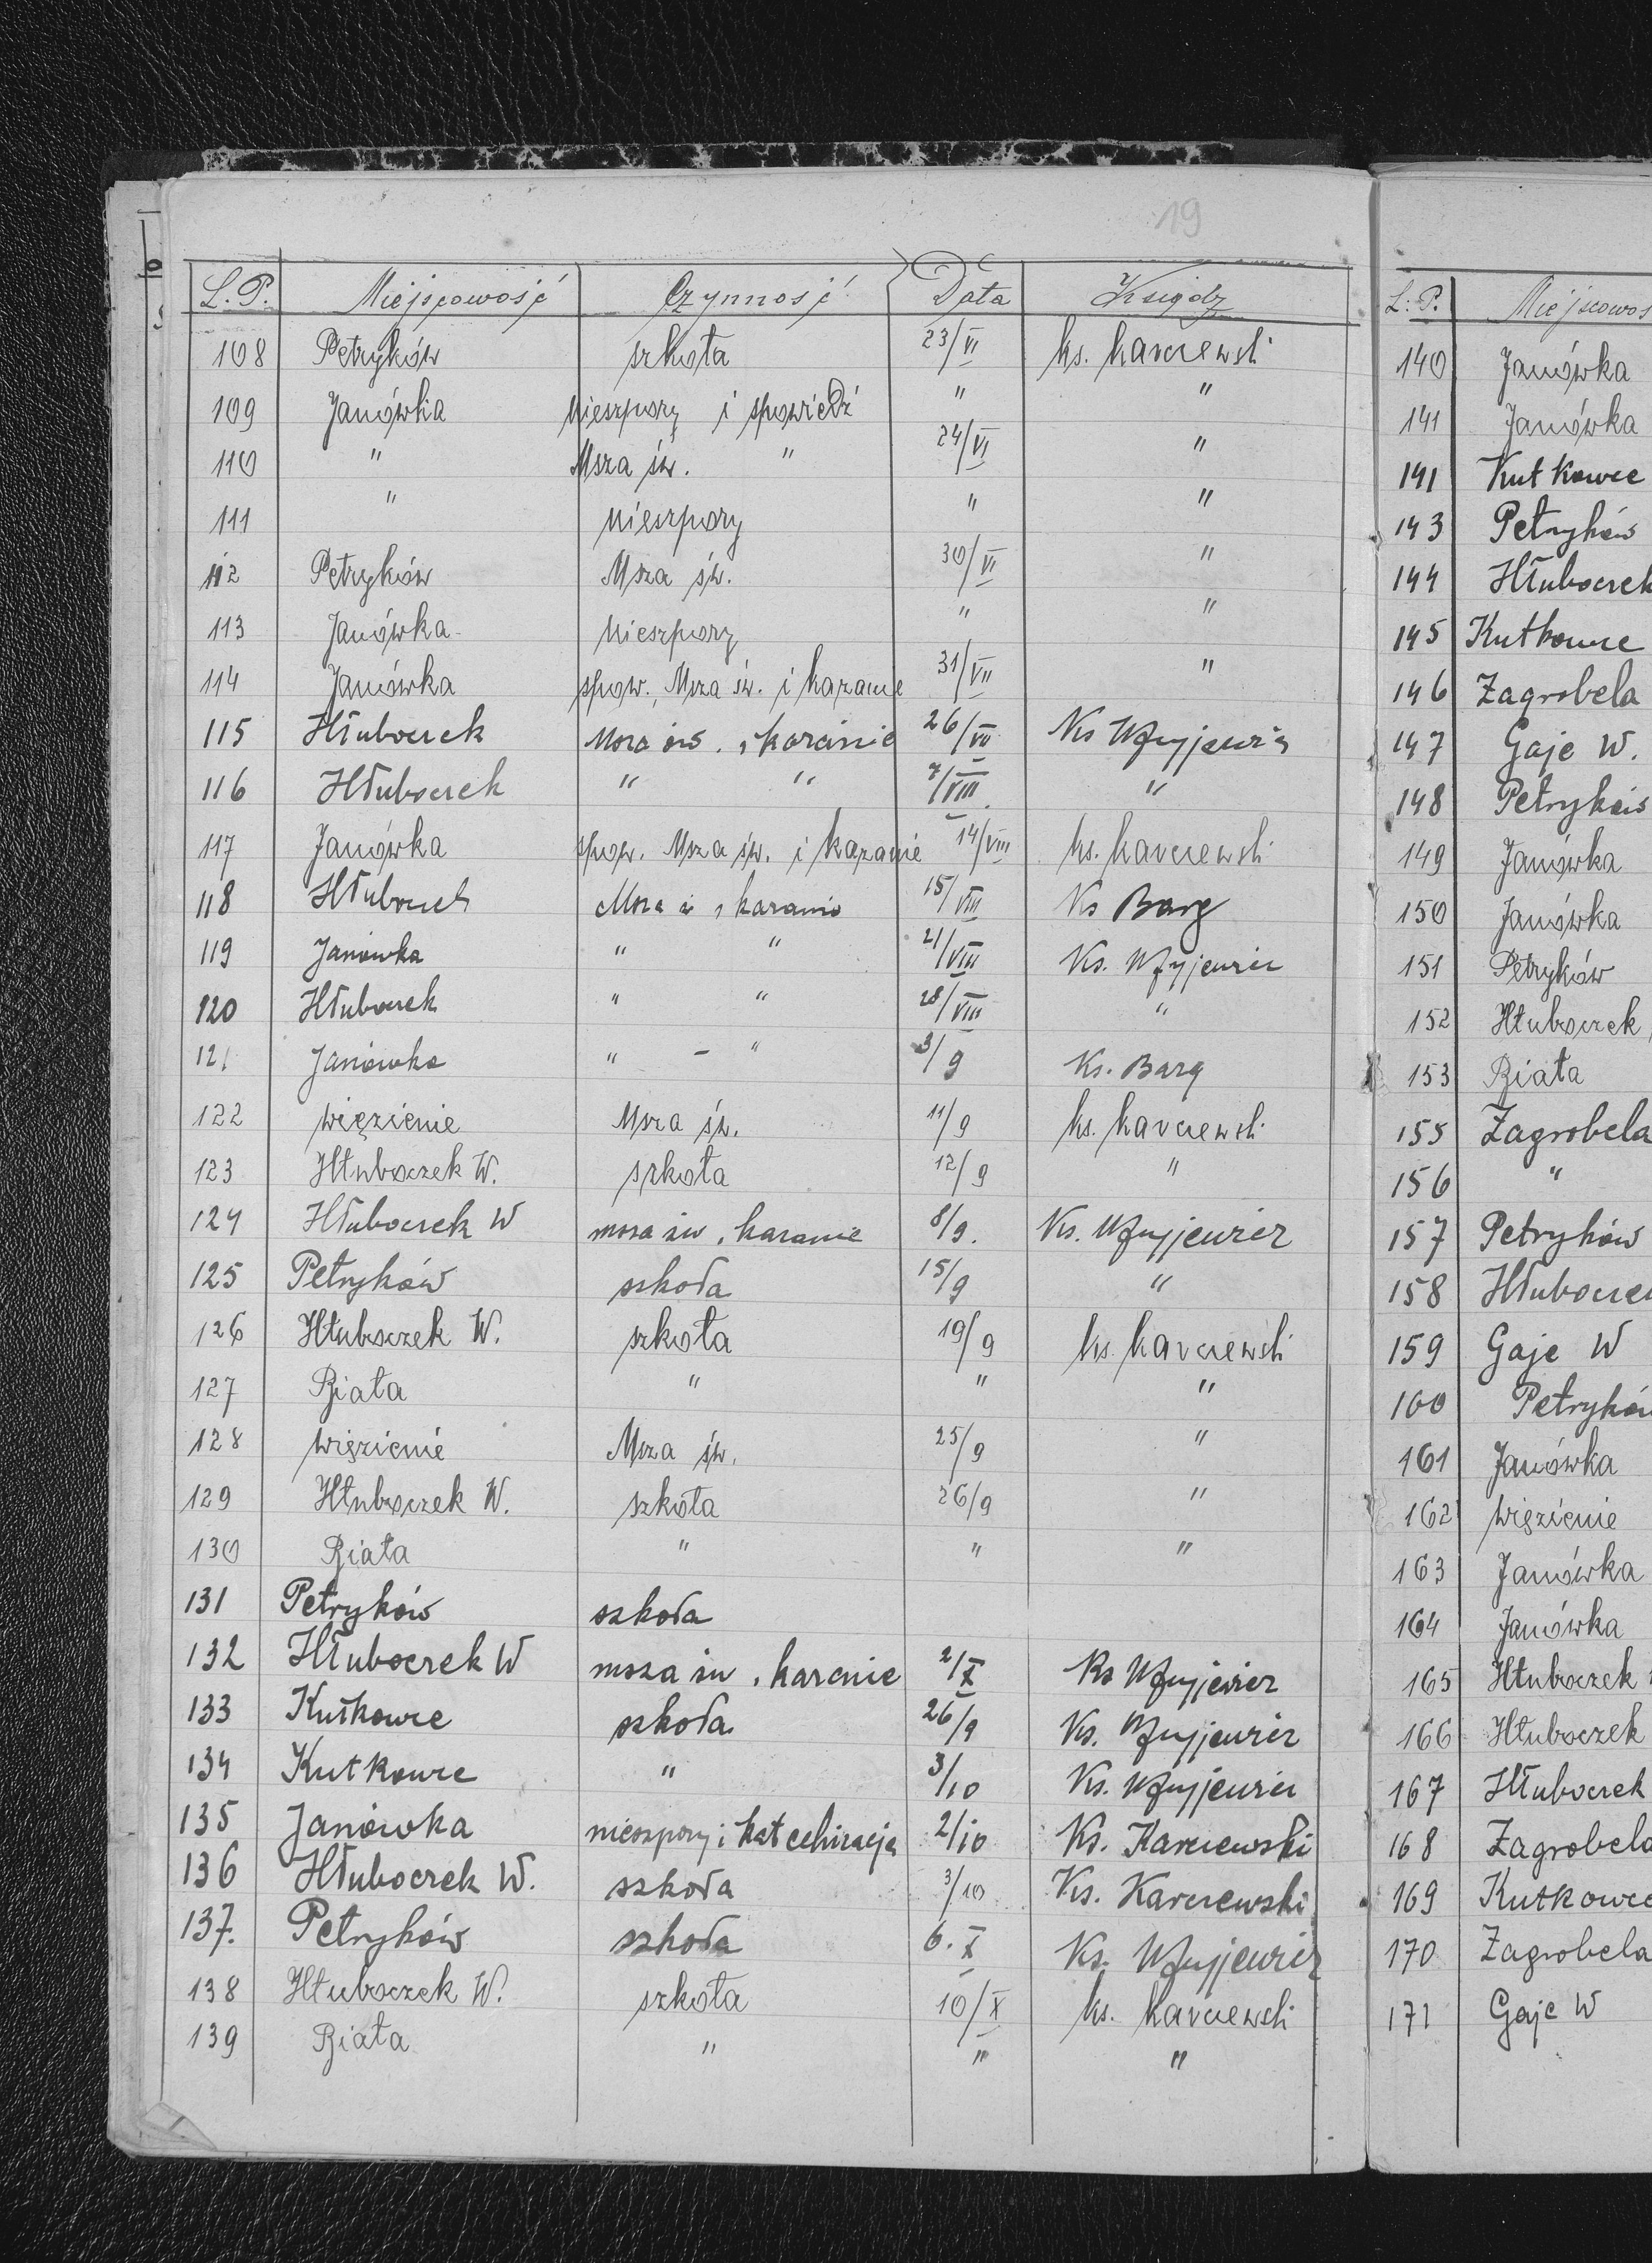 19
L.P. Miejscowość Czynność Data Ksiądz
108 Petryków szkoła 23/VI ks. Karczewski
109 Janówka Nieszpory i spowiedź " "
110 " Msza św. " 24/VI "
111 " Nieszpory " "
112 Petryków Msza św. 30/VI "
113 Janówka Nieszpory " "
114 Janówka spow. Msza św. i kazanie 31/VII "
115 Hłuboczek Msza św. i kazanie 26/VII Ks
116 Hłuboczek " " 7/VIII "
117 Janówka spow. Msza św. i kazanie 14/VIII ks. Karczewski
118 Hłuboczek Msza i kazanie 15/VIII Ks Barg
119 Janówka " " 21/VIII Ks.
120 Hłuboczek " " 28/VIII "
121 Janówka " - " 3/9 Ks. Barg
122 Więzienie Msza św. 11/9 ks. Karczewski
123 Hłuboczek W. szkoła 12/9 "
124 Hłuboczek W msza św i kazanie 8/9. Ks.
125 Petryków szkoła 15/9 "
126 Hłuboczek W. szkoła 19/9 ks. Karczewski
127 Biała " " "
128 Więzienie Msza św. 25/9 "
129 Hłuboczek W. szkoła 26/9 "
130 Biała " " "
131 Petryków szkoła
132 Hłuboczek W msza św i kazanie 2/X Ks
133 Kutkowce szkoła 26/9 Ks.
134 Kutkowce " 3/10 Ks.
135 Janówka nieszpory i katechizacja 2/10 Ks. Karczewski
136 Hłuboczek W. szkoła 3/10 Ks. Karczewski
137. Petryków szkoła 6. X Ks.
138 Hłuboczek W. szkoła 10/X ks. Karczewski
139 Biała " " "
L.P. Miejscowoś
140 Janówka
141 Janówka
141 Kutkowce
143 Petryków
144 Hłuboczek
145 Kutkowce
146 Zagrobela
147 Gaje W.
148 Petryków
149 Janówka
150 Janówka
151 Petryków
152 Hłuboczek
153 Biała
155 Zagrobela
156 "
157 Petryków
158 Hłubocze
159 Gaje W
160 Petryków
161 Janówka
162 Więzienie
163 Janówka
164 Janówka
165 Hłuboczek
166 Hłuboczek
167 Hłuboczek
168 Zagrobela
169 Kutkowce
170 Zagrobela
171 Gaje W